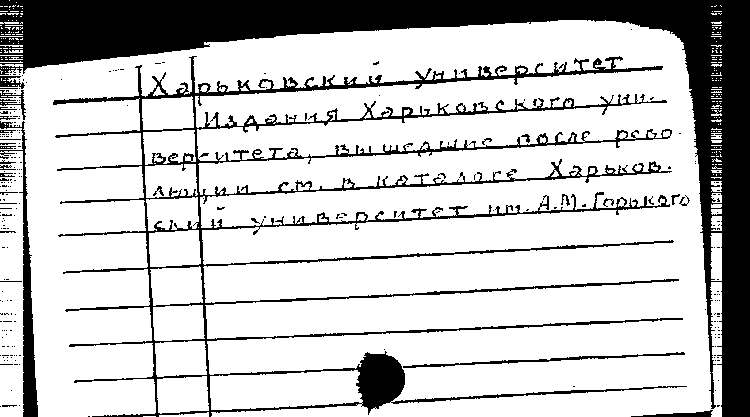 Харьковский университет
Издания Харьковского уни-
верситета, вышедшие после рево
люции см. в каталоге Харьков.
ский университет им. А.М. Горького